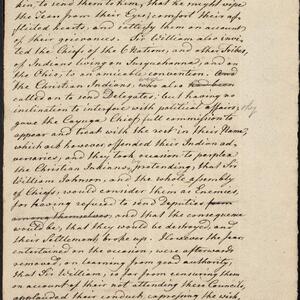 him, to send them to him, that he might wipe
the Tears from their Eyes, comfort their af-
flicted hearts, and satisfy them on account
of their grievances. Sir William also invi-
ted the Chiefs of the 6 Nations, and other Tribes
of Indians living on Susquehanna, and on
the Ohio, to an amicable convention. And
the Christian Indians, were also had been
called on to send Delegates; but having no
inclination to interfere with political affairs, they
gave the Cayuga Chief, full commission to
appear and treat with the rest in their Name,
which as however offended their Indian ad-
versaries; and they took occasion to perplex
the Christian Indians, pretending, that Sir
William Johnson, and the whole assembly
of Chiefs, would consider them as Enemies,
for having refused to send Deputies from
among themselves, and that the consequence
would be, that they would be destroyed, and
their Settlement broke up. However the fear
entertained on the occasion, were afterwards
removed, on learning from good authority,
that Sir William, so far from censuring them
on account of their not attending their Councils,
applauded their conduct, expressing the wish,